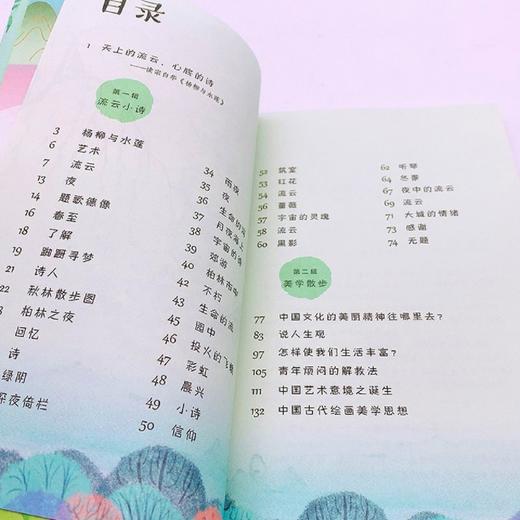 目录
1 天上的流云，心底的诗
——读宗白华《杨柳与水莲》
第一辑
流云小诗
3 杨柳与水莲
6 艺术
7 流云
13 夜
14 题歌德像
16 春至
18 了解
19 踟蹰寻梦
21 诗人
22 秋林散步图
柏林之夜
回忆
诗
绿阴
深夜倚栏
34 雨夜
35 夜
36 生命的
37 月夜海上
38 宇宙的诗
39 郊游
40 柏林市
42 不朽
43 生命的流
45 园中
46 投火的飞
47 彩虹
48 晨兴
49 小诗
50 信仰
52 筑室
53 红花
54 流云
56 蔷薇
57 宇宙的灵魂
58 流云
60 黑影
62 听琴
64 冬景
67 夜中的流云
69 流云
71 大城的情绪
73 感谢
74 无题
第二辑
美学散步
77 中国文化的美丽精神往哪里去？
83 说人生观
97 怎样使我们生活丰富？
105 青年烦闷的解救法
111 中国艺术意境之诞生
132 中国古代绘画美学思想